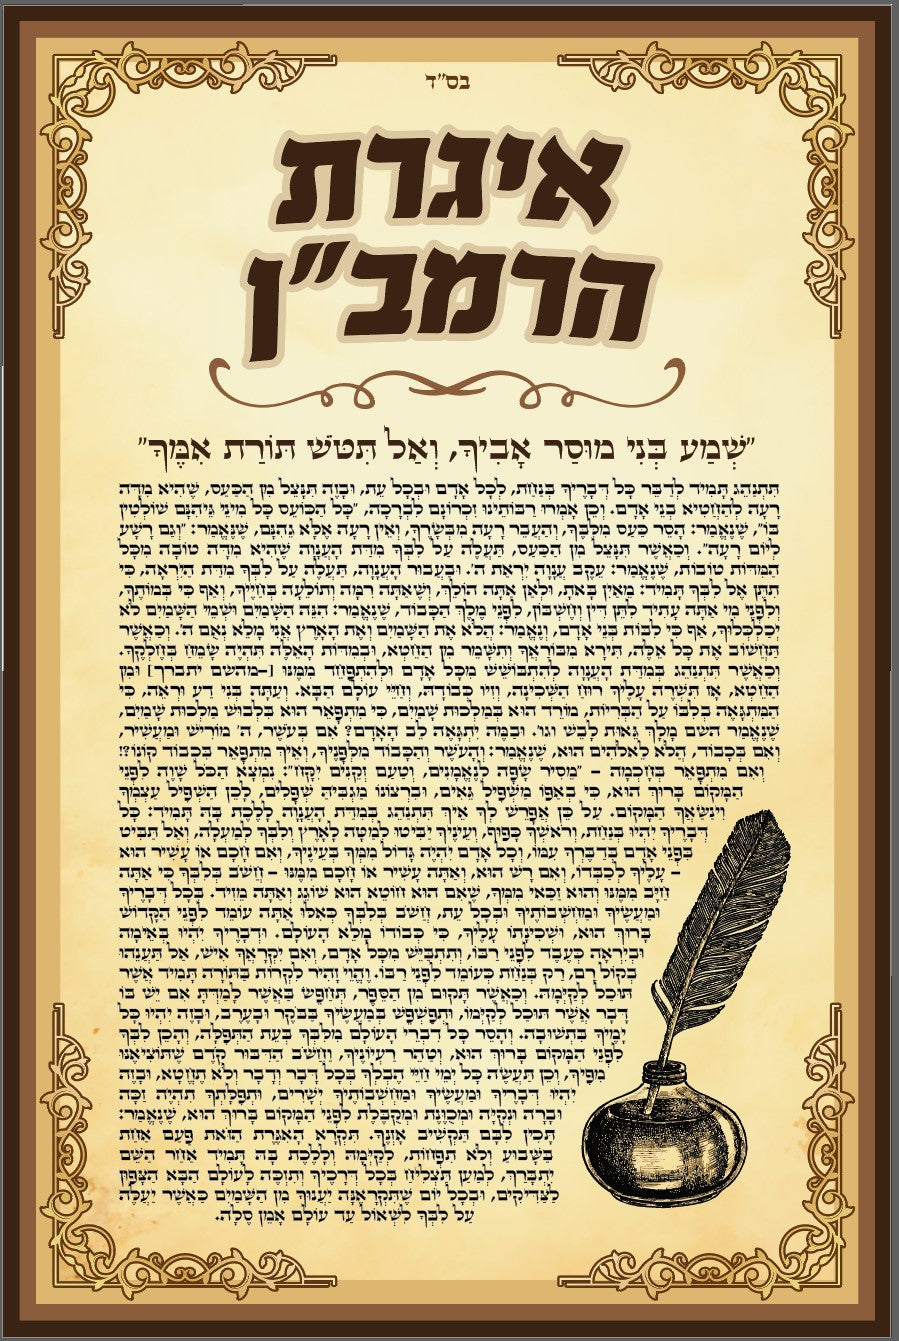 בס״ד
איגרת
הרמב״ן
״שְׁמַע בְּנִי מוּסַר אָבִיךָ, וְאַל תִּטֹּשׁ תּוֹרַת אִמֶּךָ״
תִּתְנַהֵג תָּמִיד לְדַבֵּר כָּל דְּבָרֶיךָ בְּנַחַת, לְכָל אָדָם וּבְכָל עֵת, וּבָזֶה תִּנָּצֵל מִן הַכַּעַס, שֶׁהִיא מִדָּה
רָעָה לְהַחְטִיא בְּנֵי אָדָם. וְכֵן אָמְרוּ רַבּוֹתֵינוּ זִכְרוֹנָם לִבְרָכָה, ״כָּל הַכּוֹעֵס כָּל מִינֵי גֵיהִנָּם שׁוֹלְטִין
בּוֹ״, שֶׁנֶּאֱמַר: הָסֵר כַּעַס מִלִּבֶּךָ, וְהַעֲבֵר רָעָה מִבְּשָׂרֶךָ, וְאֵין רָעָה אֶלָּא גֵהִנָּם, שֶׁנֶּאֱמַר: ״וְגַם רָשָׁע
לְיוֹם רָעָה״. וְכַאֲשֶׁר תִּנָּצֵל מִן הַכַּעַס, תַּעֲלֶה עַל לִבְּךָ מִדַּת הָעֲנָוָה שֶׁהִיא מִדָּה טוֹבָה מִכָּל
הַמִּדּוֹת טוֹבוֹת, שֶׁנֶּאֱמַר: עֵקֶב עֲנָוָה יִרְאַת ה׳. וּבַעֲבוּר הָעֲנָוָה, תַּעֲלֶה עַל לִבְּךָ מִדַּת הַיִּרְאָה, כִּי
תִתֵּן אֶל לִבְּךָ תָּמִיד: מֵאַיִן בָּאתָ, וּלְאָן אַתָּה הוֹלֵךְ, וְשֶׁאַתָּה רִמָּה וְתוֹלֵעָה בְּחַיֶּיךָ, וְאַף כִּי בְּמוֹתֶךָ,
וְלִפְנֵי מִי אַתָּה עָתִיד לִתֵּן דִּין וְחֶשְׁבּוֹן, לִפְנֵי מֶלֶךְ הַכָּבוֹד, שֶׁנֶּאֱמַר: הִנֵּה הַשָּׁמַיִם וּשְׁמֵי הַשָּׁמַיִם לֹא
יְכַלְכְּלוּךָ, אַף כִּי לִבּוֹת בְּנֵי אָדָם, וְנֶאֱמַר: הֲלֹא אֶת הַשָּׁמַיִם וְאֶת הָאָרֶץ אֲנִי מָלֵא נְאֻם ה׳. וְכַאֲשֶׁר
תַּחֲשׁוֹב אֶת כָּל אֵלֶּה, תִּירָא מִבּוֹרַאֲךָ וְתִשָּׁמֵר מִן הַחֵטְא, וּבַמִּדּוֹת הָאֵלֶּה תִּהְיֶה שָׂמֵחַ בְּחֶלְקֶךָ.
וְכַאֲשֶׁר תִּתְנַהֵג בְּמִדַּת הָעֲנָוָה לְהִתְבּוֹשֵׁשׁ מִכָּל אָדָם וּלְהִתְפַּחֵד מִמֶּנּוּ [-מהשם יתברך] וּמִן
הַחֵטְא, אָז תִּשְׁרֶה עָלֶיךָ רוּחַ הַשְּׁכִינָה, וְזִיו כְּבוֹדָהּ, וְחַיֵּי עוֹלָם הַבָּא. וְעַתָּה בְּנִי דַּע וּרְאֵה, כִּי
הַמִּתְגָּאֶה בְּלִבּוֹ עַל הַבְּרִיּוֹת, מוֹרֵד הוּא בְּמַלְכוּת שָׁמַיִם, כִּי מִתְפָּאֵר הוּא בִּלְבוּשׁ מַלְכוּת שָׁמַיִם,
שֶׁנֶּאֱמַר השם מָלָךְ גֵּאוּת לָבֵשׁ וגו׳. וּבַמֶּה יִתְגָּאֶה לֵב הָאָדָם? אִם בְּעֹשֶׁר, ה׳ מוֹרִישׁ וּמַעֲשִׁיר,
וְאִם בְּכָבוֹד, הֲלֹא לֵאלֹהִים הוּא, שֶׁנֶּאֱמַר: וְהָעֹשֶׁר וְהַכָּבוֹד מִלְּפָנֶיךָ, וְאֵיךְ מִתְפָּאֵר בִּכְבוֹד קוֹנוֹ?!
וְאִם מִתְפָּאֵר בְּחָכְמָה – ״מֵסִיר שָׂפָה לְנֶאֱמָנִים, וְטַעַם זְקֵנִים יִקָּח״: נִמְצָא הַכֹּל שָׁוֶה לִפְנֵי
הַמָּקוֹם בָּרוּךְ הוּא, כִּי בְאַפּוֹ מַשְׁפִּיל גֵּאִים, וּבִרְצוֹנוֹ מַגְבִּיהַּ שְׁפָלִים, לָכֵן הַשְׁפִּיל עַצְמְךָ
וִינַשְּׂאֲךָ הַמָּקוֹם. עַל כֵּן אֲפָרֵשׁ לְךָ אֵיךְ תִּתְנַהֵג בְּמִדַּת הָעֲנָוָה לָלֶכֶת בָּהּ תָּמִיד: כָּל
דְּבָרֶיךָ יִהְיוּ בְּנַחַת, וְרֹאשְׁךָ כָּפוּף, וְעֵינֶיךָ יַבִּיטוּ לְמַטָּה לָאָרֶץ וְלִבְּךָ לְמַעְלָה, וְאַל תַּבִּיט
בִּפְנֵי אָדָם בְּדַבֶּרְךָ עִמּוֹ, וְכָל אָדָם יִהְיֶה גָדוֹל מִמְּךָ בְּעֵינֶיךָ, וְאִם חָכָם אוֹ עָשִׁיר הוּא
– עָלֶיךָ לְכַבְּדוֹ, וְאִם רָשׁ הוּא, וְאַתָּה עָשִׁיר אוֹ חָכָם מִמֶּנּוּ – חֲשֹׁב בְּלִבְּךָ כִּי אַתָּה
חַיָּב מִמֶּנּוּ וְהוּא זַכַּאי מִמְּךָ, שֶׁאִם הוּא חוֹטֵא הוּא שׁוֹגֵג וְאַתָּה מֵזִיד. בְּכָל דְּבָרֶיךָ
וּמַעֲשֶׂיךָ וּמַחְשְׁבוֹתֶיךָ וּבְכָל עֵת, חֲשֹׁב בְּלִבְּךָ כְּאִלּוּ אַתָּה עוֹמֵד לִפְנֵי הַקָּדוֹשׁ
בָּרוּךְ הוּא, וּשְׁכִינָתוֹ עָלֶיךָ, כִּי כְבוֹדוֹ מָלֵא הָעוֹלָם. וּדְבָרֶיךָ יִהְיוּ בְּאֵימָה
וּבְיִרְאָה כְּעֶבֶד לִפְנֵי רַבּוֹ, וְתִתְבַּיֵּשׁ מִכָּל אָדָם, וְאִם יִקְרָאֲךָ אִישׁ, אַל תַּעֲנֵהוּ
בְּקוֹל רָם, רַק בְּנַחַת כְּעוֹמֵד לִפְנֵי רַבּוֹ. וֶהֱוֵי זָהִיר לִקְרוֹת בַּתּוֹרָה תָּמִיד אֲשֶׁר
תּוּכַל לְקַיְּמָהּ. וְכַאֲשֶׁר תָּקוּם מִן הַסֵּפֶר, תְּחַפֵּשׂ בַּאֲשֶׁר לָמַדְתָּ אִם יֵשׁ בּוֹ
דָּבָר אֲשֶׁר תּוּכַל לְקַיְּמוֹ, וּתְפַשְׁפֵּשׁ בְּמַעֲשֶׂיךָ בַּבֹּקֶר וּבָעֶרֶב, וּבָזֶה יִהְיוּ כָּל
יָמֶיךָ בִּתְשׁוּבָה. וְהָסֵר כָּל דִּבְרֵי הָעוֹלָם מִלִּבְּךָ בְּעֵת הַתְּפִלָּה, וְהָכֵן לִבְּךָ
לִפְנֵי הַמָּקוֹם בָּרוּךְ הוּא, וְטַהֵר רַעְיוֹנֶיךָ, וַחֲשֹׁב הַדִּבּוּר קֹדֶם שֶׁתּוֹצִיאֶנּוּ
מִפִּיךָ, וְכֵן תַּעֲשֶׂה כָּל יְמֵי חַיֵּי הֶבְלֶךָ בְּכָל דָּבָר וְדָבָר וְלֹא תֶחֱטָא, וּבָזֶה
יִהְיוּ דְּבָרֶיךָ וּמַעֲשֶׂיךָ וּמַחְשְׁבוֹתֶיךָ יְשָׁרִים, וּתְפִלָּתְךָ תִּהְיֶה זַכָּה
וּבָרָה וּנְקִיָּה וּמְכֻוֶּנֶת וּמְקֻבֶּלֶת לִפְנֵי הַמָּקוֹם בָּרוּךְ הוּא, שֶׁנֶּאֱמַר:
תָּכִין לִבָּם תַּקְשִׁיב אָזְנֶךָ. תִּקְרָא הָאִגֶּרֶת הַזֹּאת פַּעַם אַחַת
בַּשָּׁבוּעַ וְלֹא תִפְחוֹת, לְקַיְּמָהּ וְלָלֶכֶת בָּהּ תָּמִיד אַחַר הַשֵּׁם
יִתְבָּרַךְ, לְמַעַן תַּצְלִיחַ בְּכָל דְּרָכֶיךָ וְתִזְכֶּה לָעוֹלָם הַבָּא הַצָּפוּן
לַצַּדִּיקִים, וּבְכָל יוֹם שֶׁתִּקְרָאֶנָּה יַעֲנוּךָ מִן הַשָּׁמַיִם כַּאֲשֶׁר יַעֲלֶה
עַל לִבְּךָ לִשְׁאוֹל עַד עוֹלָם אָמֵן סֶלָה.